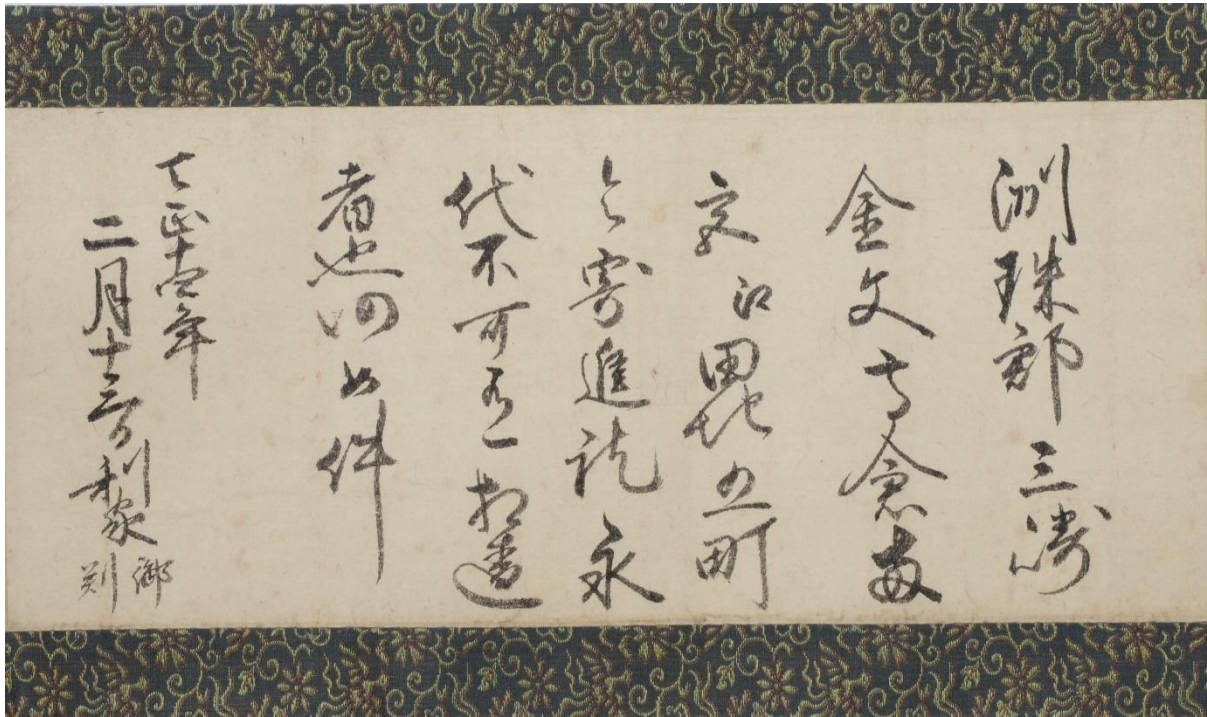 洲珠郡三崎
金文高倉両
宮江田地五町
令寄進訖永
代不可有相違
者也仍如件
天正十四年
二月十三日利家
御判